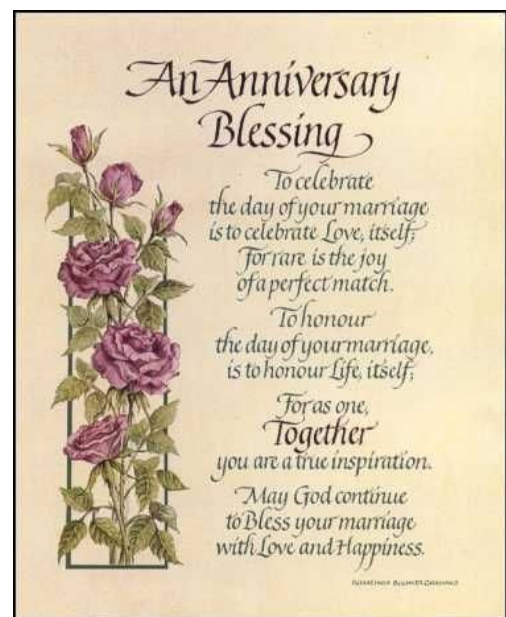 An Anniversary
Blessing
To celebrate
the day of your marriage
is to celebrate Love, itself;
For rare is the joy
of a perfect match.
To honour
the day of your marriage,
is to honour Life, itself;
For as one,
Together
you are a true inspiration.
May God continue
to Bless your marriage
with Love and Happiness.